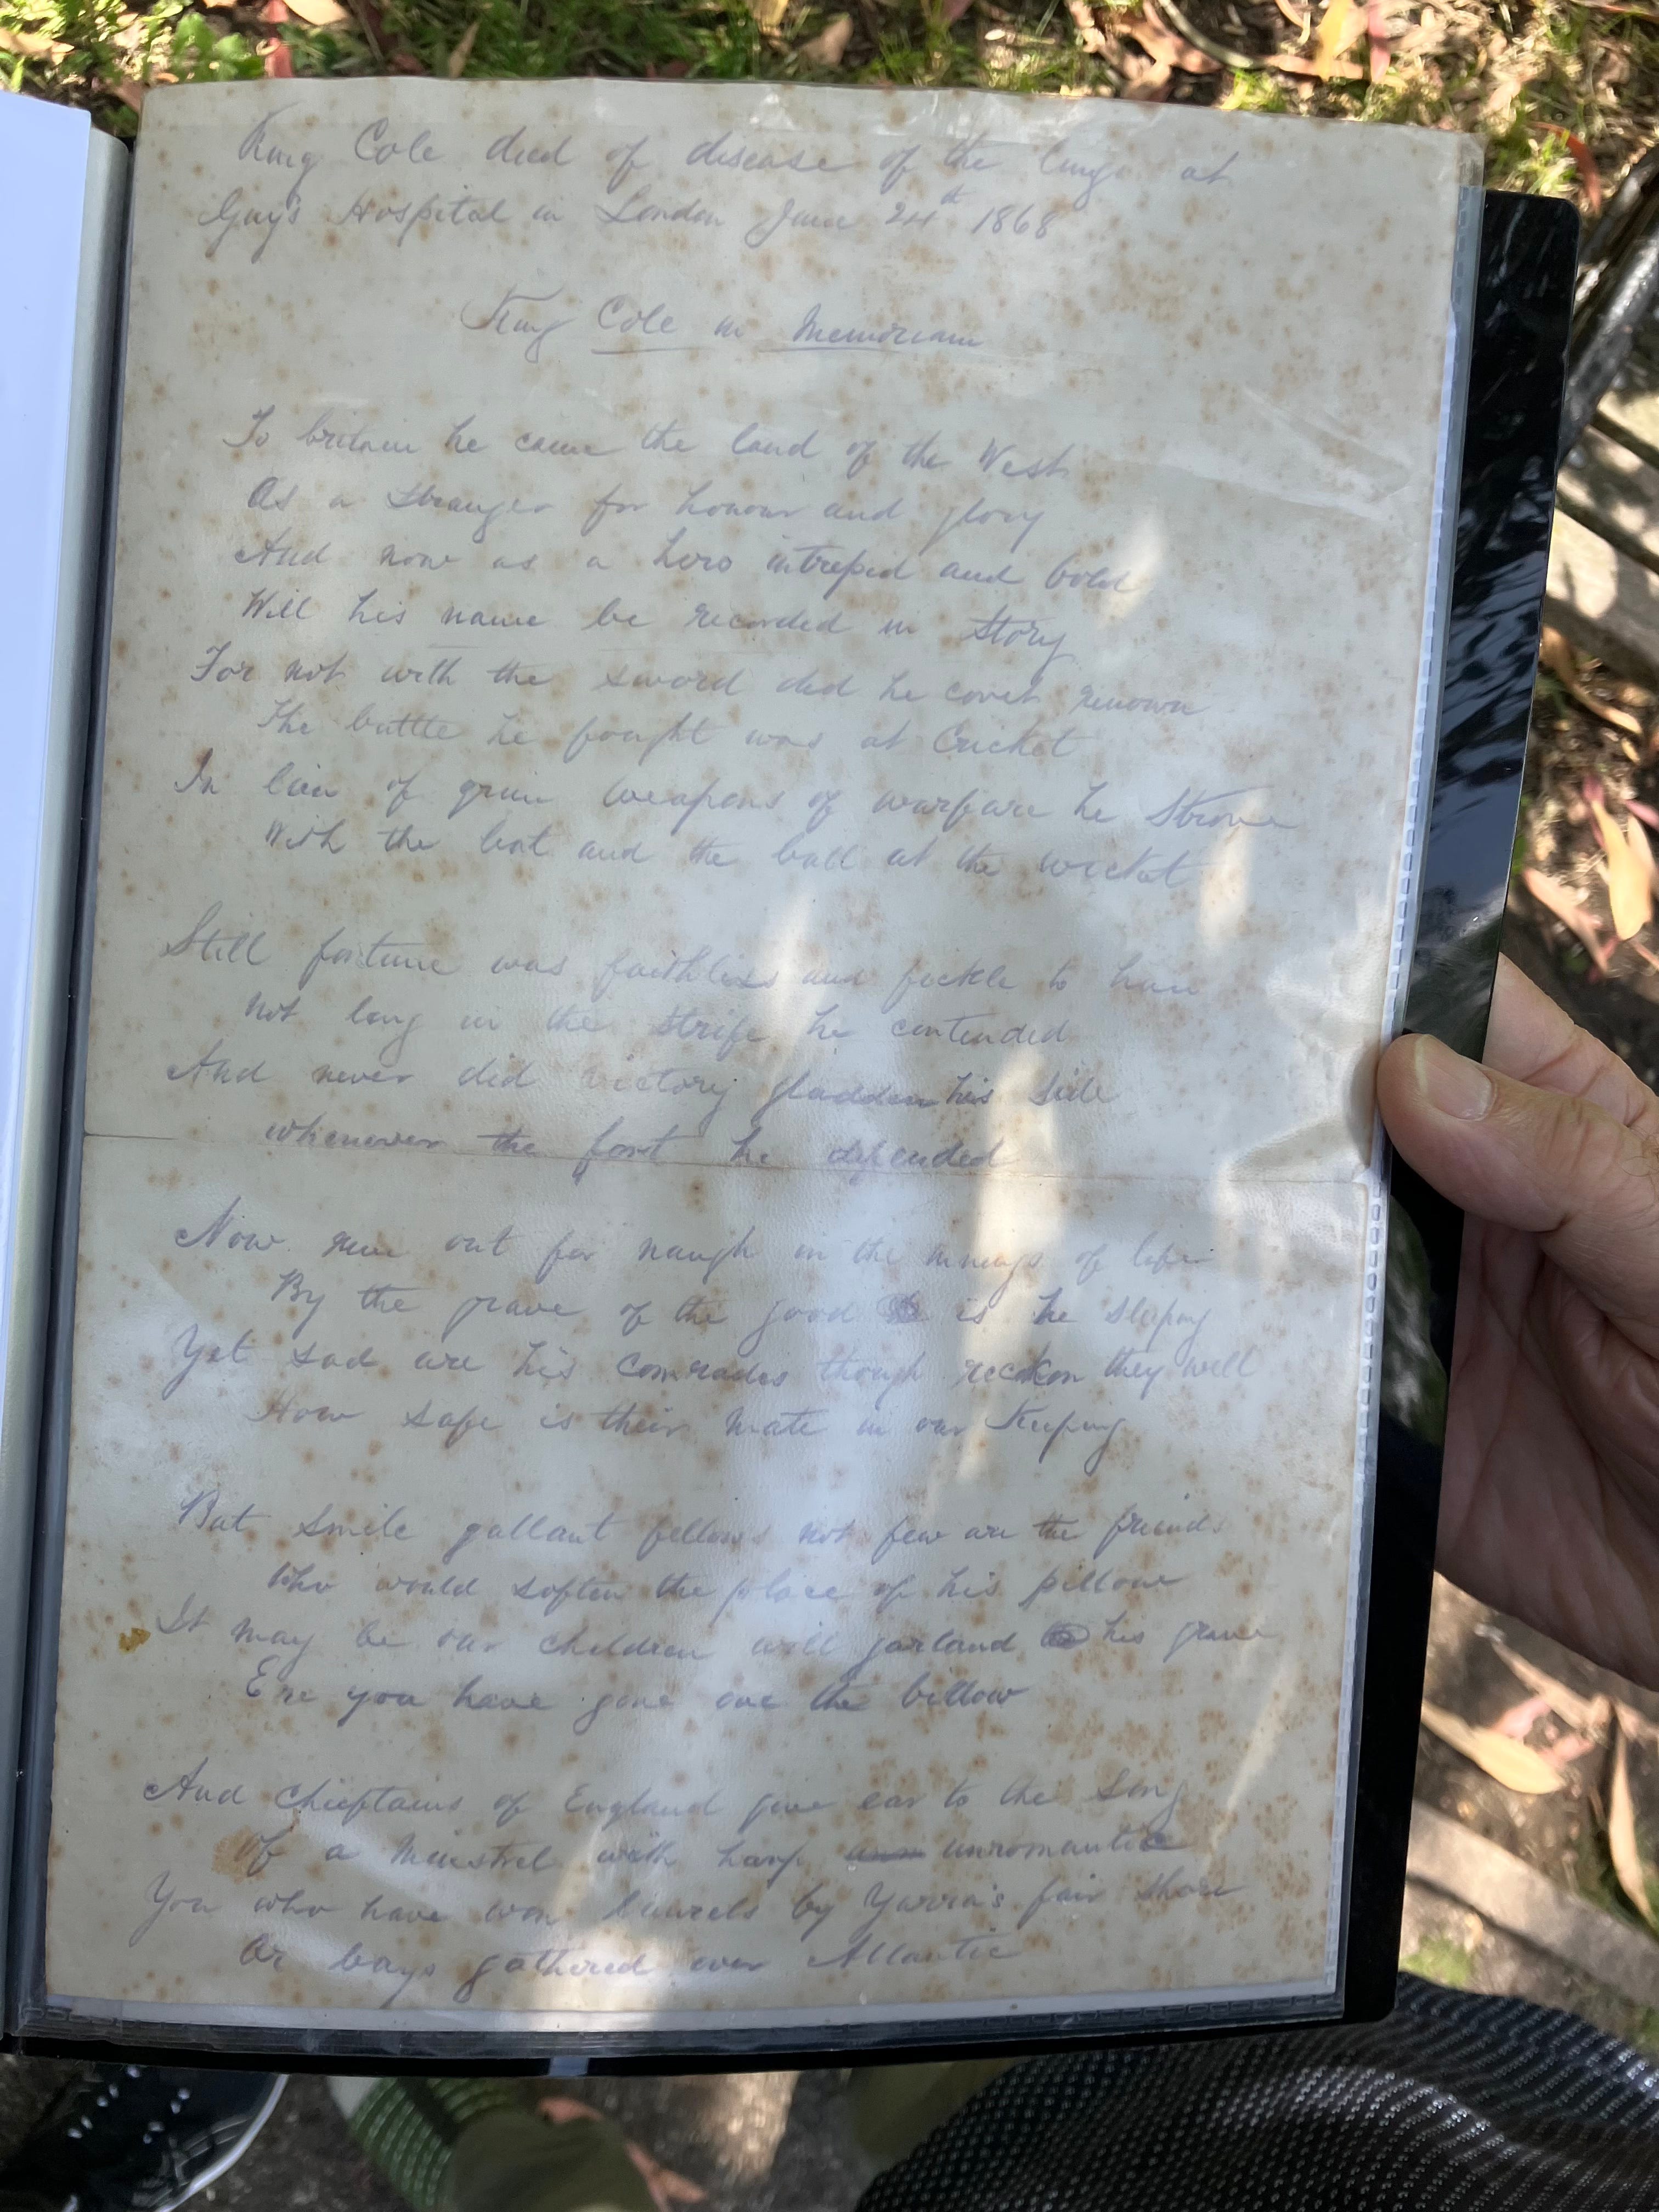 King Cole died of disease of the lungs at
Guy's Hospital in London June 24th 1868
King Cole in Memoriam
To britain he came the land of the West
As a stranger for honour and glory
And now as a hero intrepid and bold
Will his name be recorded in Story
For not with the sword did he covet renown
The battle he fought was at Cricket
In lieu of grim weapons of warfare he Strove
With the bat and the ball at the wicket
Still fortune was faithless and fickle to him
Not long in the strife he contended
And never did victory gladden his side
whenever the fort he defended
Now run out for naugh in the innings of life
By the grave of the good is he sleeping
Yet sad are his comrades though reckon they well
How safe is their mate in our Keeping
But smile gallant fellows not few are the friends
Who would soften the place of his pillow
It may be our children will garland his grave
Ere you have gone ore the billow
And chieftains of England give ear to the Song
Of a minstrel with harp unromantic
You who have won laurels by Yarra's fair shore
Or bays gathered over Atlantic